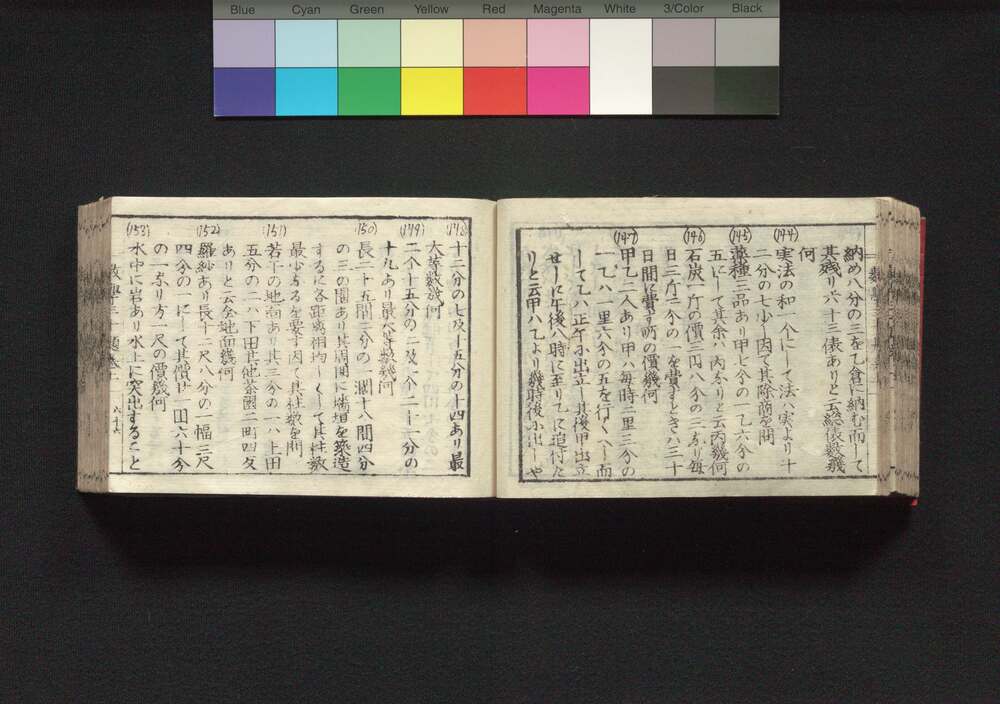 Blue Cyan Green Yellow Red Magenta White 3/Color Black
納め八分の三を乙倉に納む而して
其残り六十三俵ありと云総俵数幾
何
(144) 実法の和一个にして法ハ実より十
二分の七小し因て其除商を問
(145) 薬種三品あり甲ヒ分の一乙六分の
五にして其余ハ丙なりと云丙幾何
(146) 石炭一斤の價三円八分の二なり毎
日三斤二个の一を費すときハ三十
日間に費す所の價幾何
(147) 甲乙二人あり甲ハ毎時二里三分の
一乙ハ一里六分の五を行くへし而
して乙ハ正午に出立し其後甲出立
せしに午後八時に至りて乙に追付た
りと云甲ハ乙より幾時後に出しや
(148) 十二分の七及十五分の十四あり最
大等数幾何
(149) 二个十五分の二及六个二十一分の
十九あり最大等数幾何
(150) 長二十五間二分の一濶十八間四分
の三の園あり其周囲に墻垣を築造
するに各距離相均しくして其柱数
最少なるを要す因て其柱数を問
(151) 若干の地面あり其三分の一ハ上田
五分の二ハ下田其他茶園二町四反
ありと云全地面幾何
(152) 羅紗あり長十二尺八分の一幅三尺
四分の一にして其價廿一円六十分
の一なり方一尺の價幾何
(153) 水中に岩あり水上に突出すること